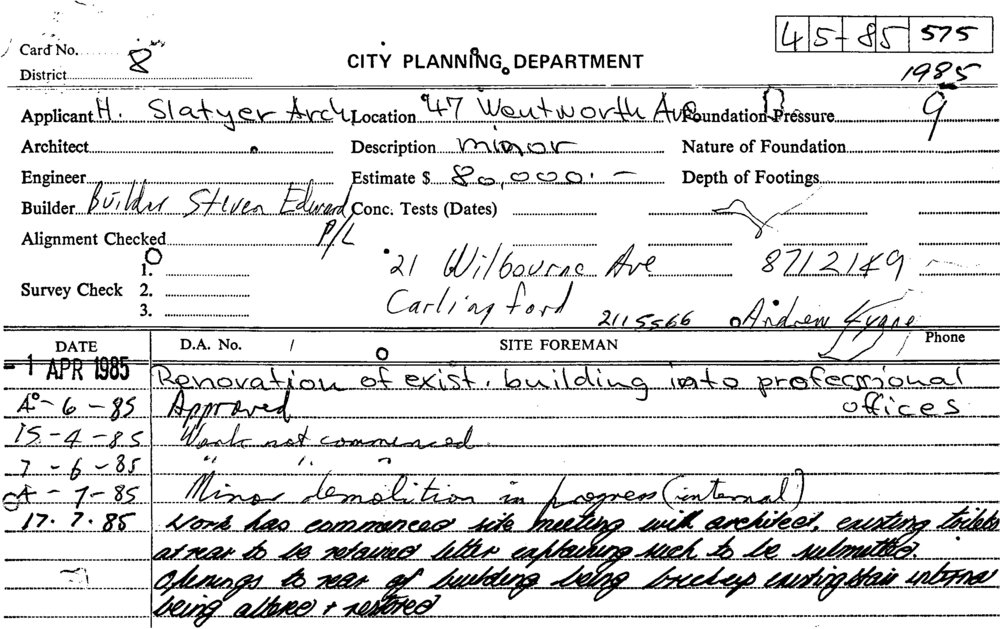 45-85 575
Card No. 8
CITY PLANNING DEPARTMENT
District
1985
Applicant H. Slatyer Arch. Location 47 Wentworth Ave Foundation Pressure 9
Architect Description minor Nature of Foundation
Engineer Estimate $ 80,000.— Depth of Footings
Builder Builder Steven Edward P/L Conc. Tests (Dates)
Alignment Checked
21 Wilbourne Ave 8712149
1.
Survey Check 2.
Carlingford 2115566 Andrew
3.
DATE D.A. No. / SITE FOREMAN Phone
-1 APR 1985 Renovation of exist. building into professional offices
4-6-85 Approved
15-4-85 Work not commenced
7-6-85 " " "
4-7-85 Minor demolition in progress (internal)
17.7.85 Work has commenced site meeting with architect, existing toilets
at rear to be retained letter explaining such to be submitted.
Openings to rear of building being bricked up existing stair internal
being altered + restored